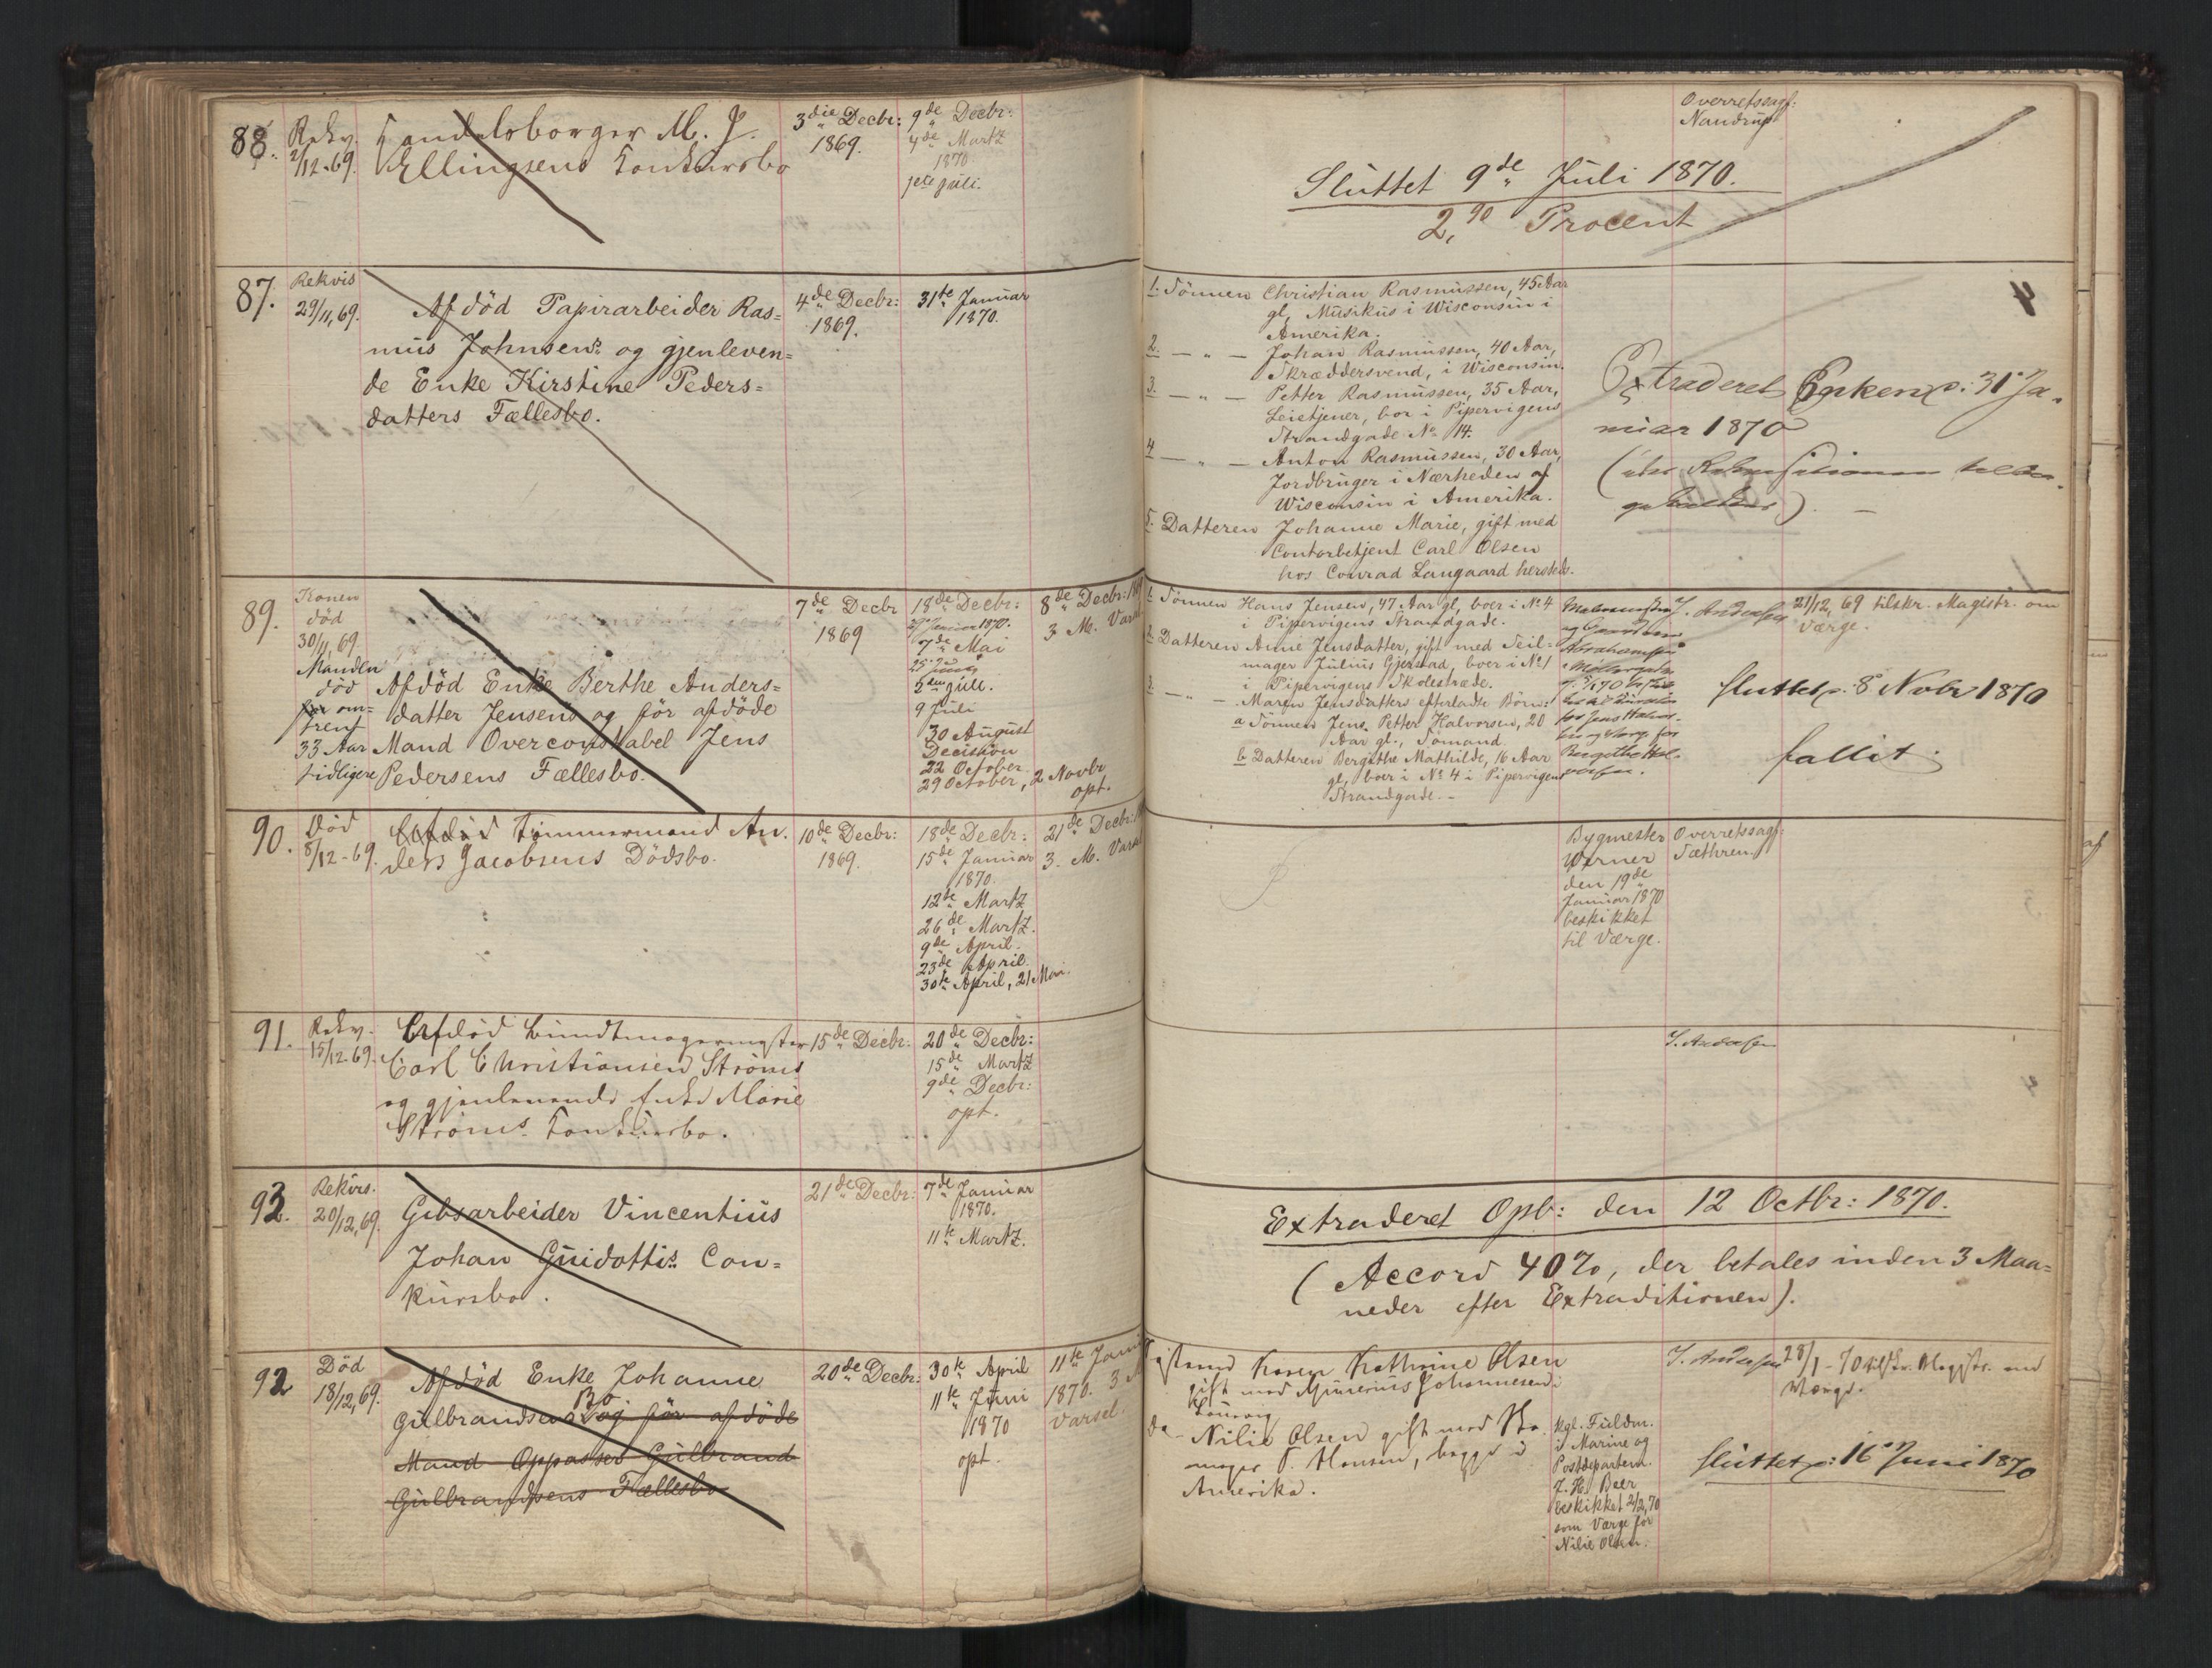 88.
Rekv.
2/12-69.
Handelsborger M. J.
Ellingsens Konkursbo
3die Decbr:
1869.
9de Decbr:
4de Martz
1870
Juli.
Overretssagf:
Nandrup
Sluttet 9de Juli 1870.
2,90 Procent
87.
Rekvis
29/11,69.
Afdöd Papirarbeider Ras=
mus Johnsens og gjenleven=
de Enke Kirstine Peders=
datters Fællesbo.
4de Decbr:
1869.
31te Januar
1870.
1. Sönnen Christian Rasmussen, 45 Aar
gl, Musikus i Wisconsin i
Amerika.
2. — " — Johan Rasmussen, 40 Aar,
Skræddersvend, i Wisconsin.
3. — " — Petter Rasmussen, 35 Aar,
Leietjener, bor i Pipervigens
Strandgade No 14.
4 — " — Anton Rasmussen, 30 Aar,
Jordbruger i Nærheden af
Wisconsin i Amerika.
5. Datteren Johanne Marie, gift med
Contorbetjent Carl Olsen
hos Conrad Langaard hersteds.
4
Extraderet Enken d: 31 Ja-
nuar 1870
89.
Konen
död
30/11,69
Manden
död
for om=
trent
33 Aar
tidligere
Afdöd Enke Berthe Anders=
datter Jensens og för afdöde
Mand Overconstabel Jens
Pedersens Fællesbo.
7de Decbr
1869
18de Decbr:
Januar 1870.
7de Mai
2den Juli.
9 Juli
30 August
Decision
22 October
29 October, 2 Novbr
opt.
8de Decbr:
3 M. Varsel
1. Sönnen Hans Jensen, 47 Aar gl, boer i No 4
i Pipervigens Strandgade.
2. Datteren Anne Jensdatter, gift med Seil=
mager Julius Gjerstad, boer i No 1
i Pipervigens Skolestræde.
3. — " — Maren Jensdatters efterladte Börn:
a Sönnen Jens Petter Halvorsen, 20
Aar gl., Sömand.
b Datteren Bergithe Mathilde, 16 Aar
gl, boer i No 4 i Pipervigens
Strandgade.-
J. Andersen
21/12,69 tilskr. Magistr. om
Værge.
Sluttet d: 8 Novbr 1870
fallit.
90.
Död
8/12-69.
Afdöd Tömmermand An-
ders Jacobsens Dödsbo.
10de Decbr:
1869.
18de Decbr:
15de Januar
1870.
12te Martz
26de Martz.
9de April.
23de April.
30te April, 21 Mai.
21de Decbr:
3. M. Varsel
Bygmester
Werner
den 19de
Januar 1870
beskikket
til Værge.
Overretssagf:
Sæthren.
91.
Rekv.
15/12-69.
Afdöd Bundtmagermester
Carl Christiansen Ströms
og gjenlevende Enke Marie
Ströms Konkursbo.
15de Decbr.
20de Decbr:
15de Martz
9de Decbr:
opt.
J. Andersen
93.
Rekvis.
20/12,69.
Gibsarbeider Vincentius
Johan Guidottis Con=
kursbo.
21de Decbr:
7de Januar
1870.
11te Martz.
Extraderet Opb: den 12 Octbr: 1870.
(Accord 40%, der betales inden 3 Maa=
neder efter Extraditionen).
92
Död
18/12,69.
Afdöd Enke Johanne
Gulbrandsens Bo og för afdöde
Mand Oppasser Gulbrand
Gulbrandsens Fællesbo
20de Decbr:
30te April
11te Juni
1870
opt.
11te Januar
1870. 3 M
Varsel.
Karen Kathrine Olsen
gift med Johannesen i
Nilie Olsen gift med Sko-
mager P. Hansen, begge i
Amerika.
kgl. Fuldm.
i Marine og
Postdepartem.
J. H. Beer
beskikket 2/2,70
som Værge for
Nilie Olsen.
J. Andersen
28/1-70 tilskr. Magistr. om
Værge.
Sluttet d: 16 Juni 1870